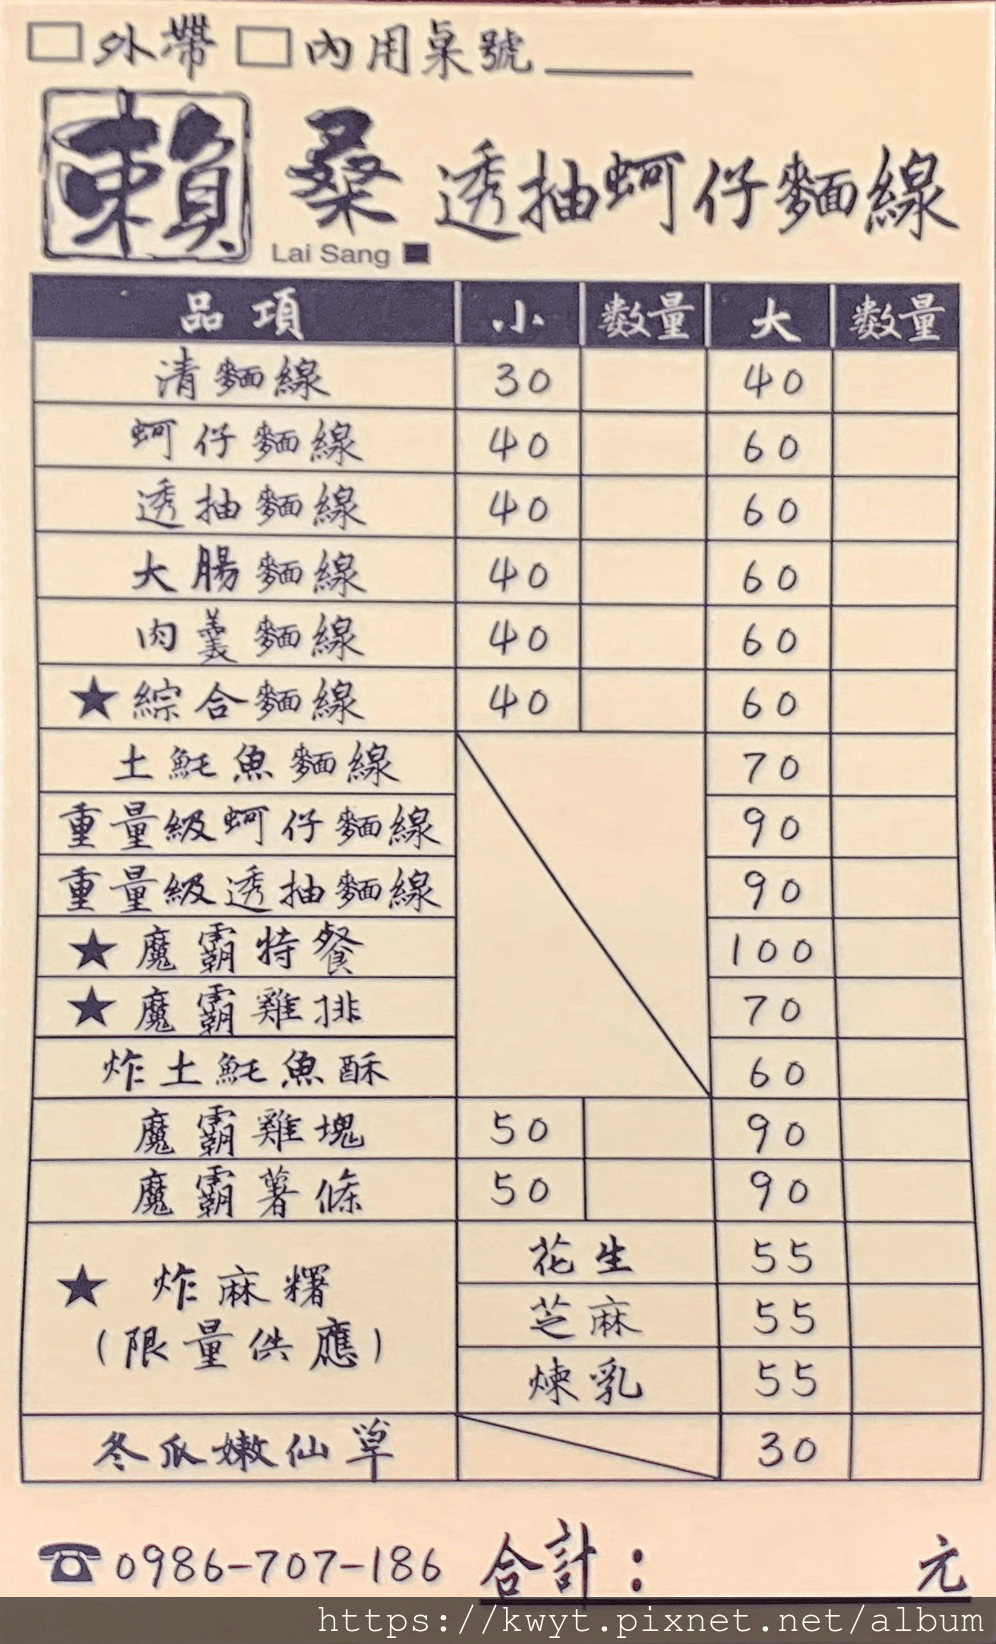 外帶 內用桌號
賴桑 透抽蚵仔麵線
Lai Sang
品項 小 數量 大 數量
清麵線 30 40
蚵仔麵線 40 60
透抽麵線 40 60
大腸麵線 40 60
肉羹麵線 40 60
★綜合麵線 40 60
土魠魚麵線 70
重量級蚵仔麵線 90
重量級透抽麵線 90
★魔霸特餐 100
★魔霸雞排 70
炸土魠魚酥 60
魔霸雞塊 50 90
魔霸薯條 50 90
★ 炸麻糬
(限量供應)
花生 55
芝麻 55
煉乳 55
冬瓜嫩仙草 30
☎0986-707-186 合計: 元
https://kwyt.pixnet.net/album